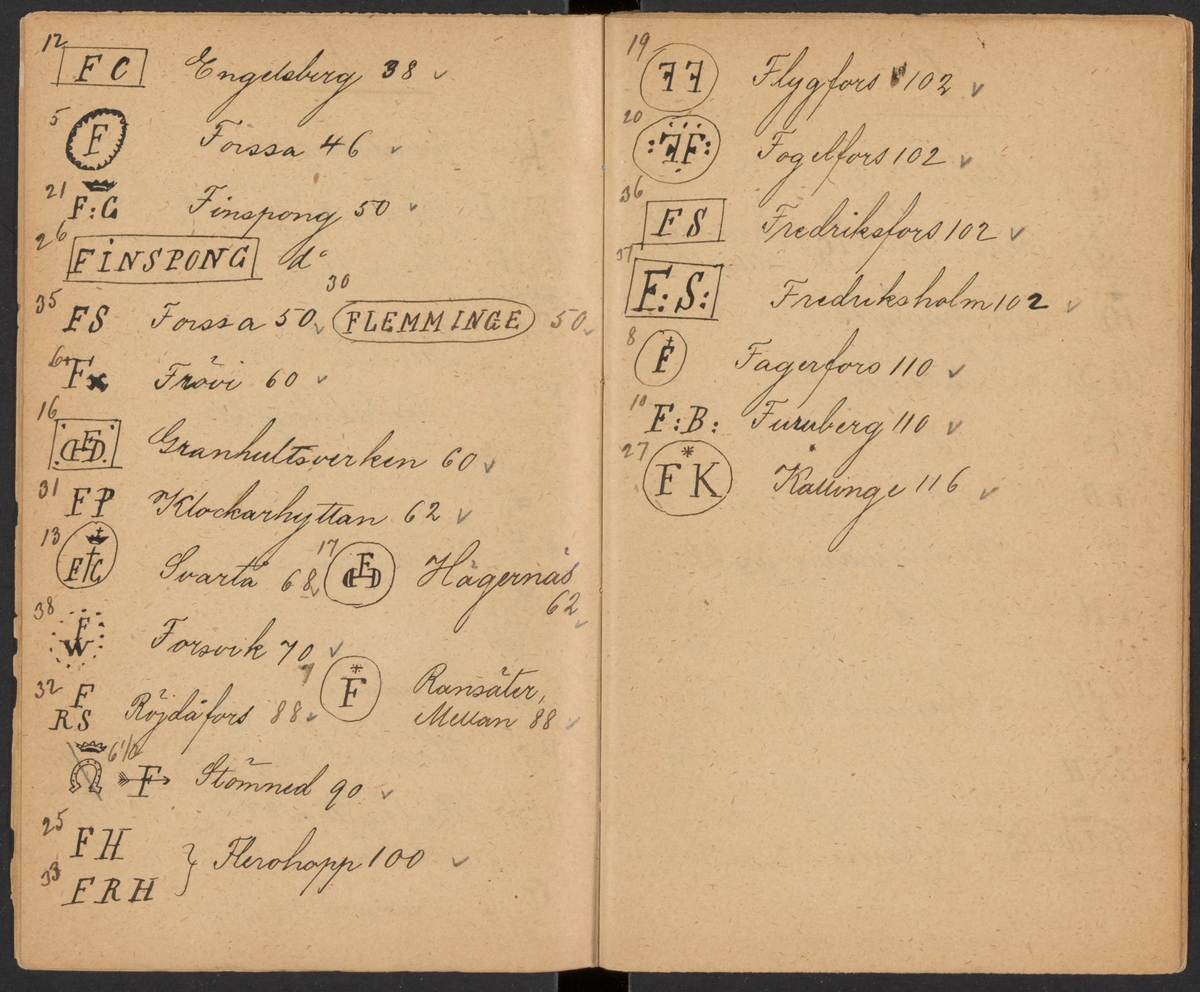 12
F C Engelsberg 38 ✓
5
F Forssa 46 ✓
21
F:G Finspong 50 ✓
26
FINSPONG do
35 30
FS Forssa 50 ✓ FLEMMINGE 50 ✓
6
Fx Frövi 60 ✓
16
Granhultsverken 60 ✓
31
FP Klockarhyttan 62 ✓
13 17
F G Svartå 68 ✓ Hägernäs
62 ✓
38
F
W Forsvik 70 ✓
7
32
F F Ransäter,
RS Röjdåfors 88 ✓ Mellan 88 ✓
6 1/2
F Stömned 90 ✓
25
FH
} Flerohopp 100 ✓
33
FRH
19
FF Flygfors 102 ✓
20
:FF: Fogelfors 102 ✓
36
FS Fredriksfors 102 ✓
37
F:S: Fredriksholm 102 ✓
8
F Fagerfors 110 ✓
10
F:B: Furuberg 110 ✓
27
*
F K Kallinge 116 ✓